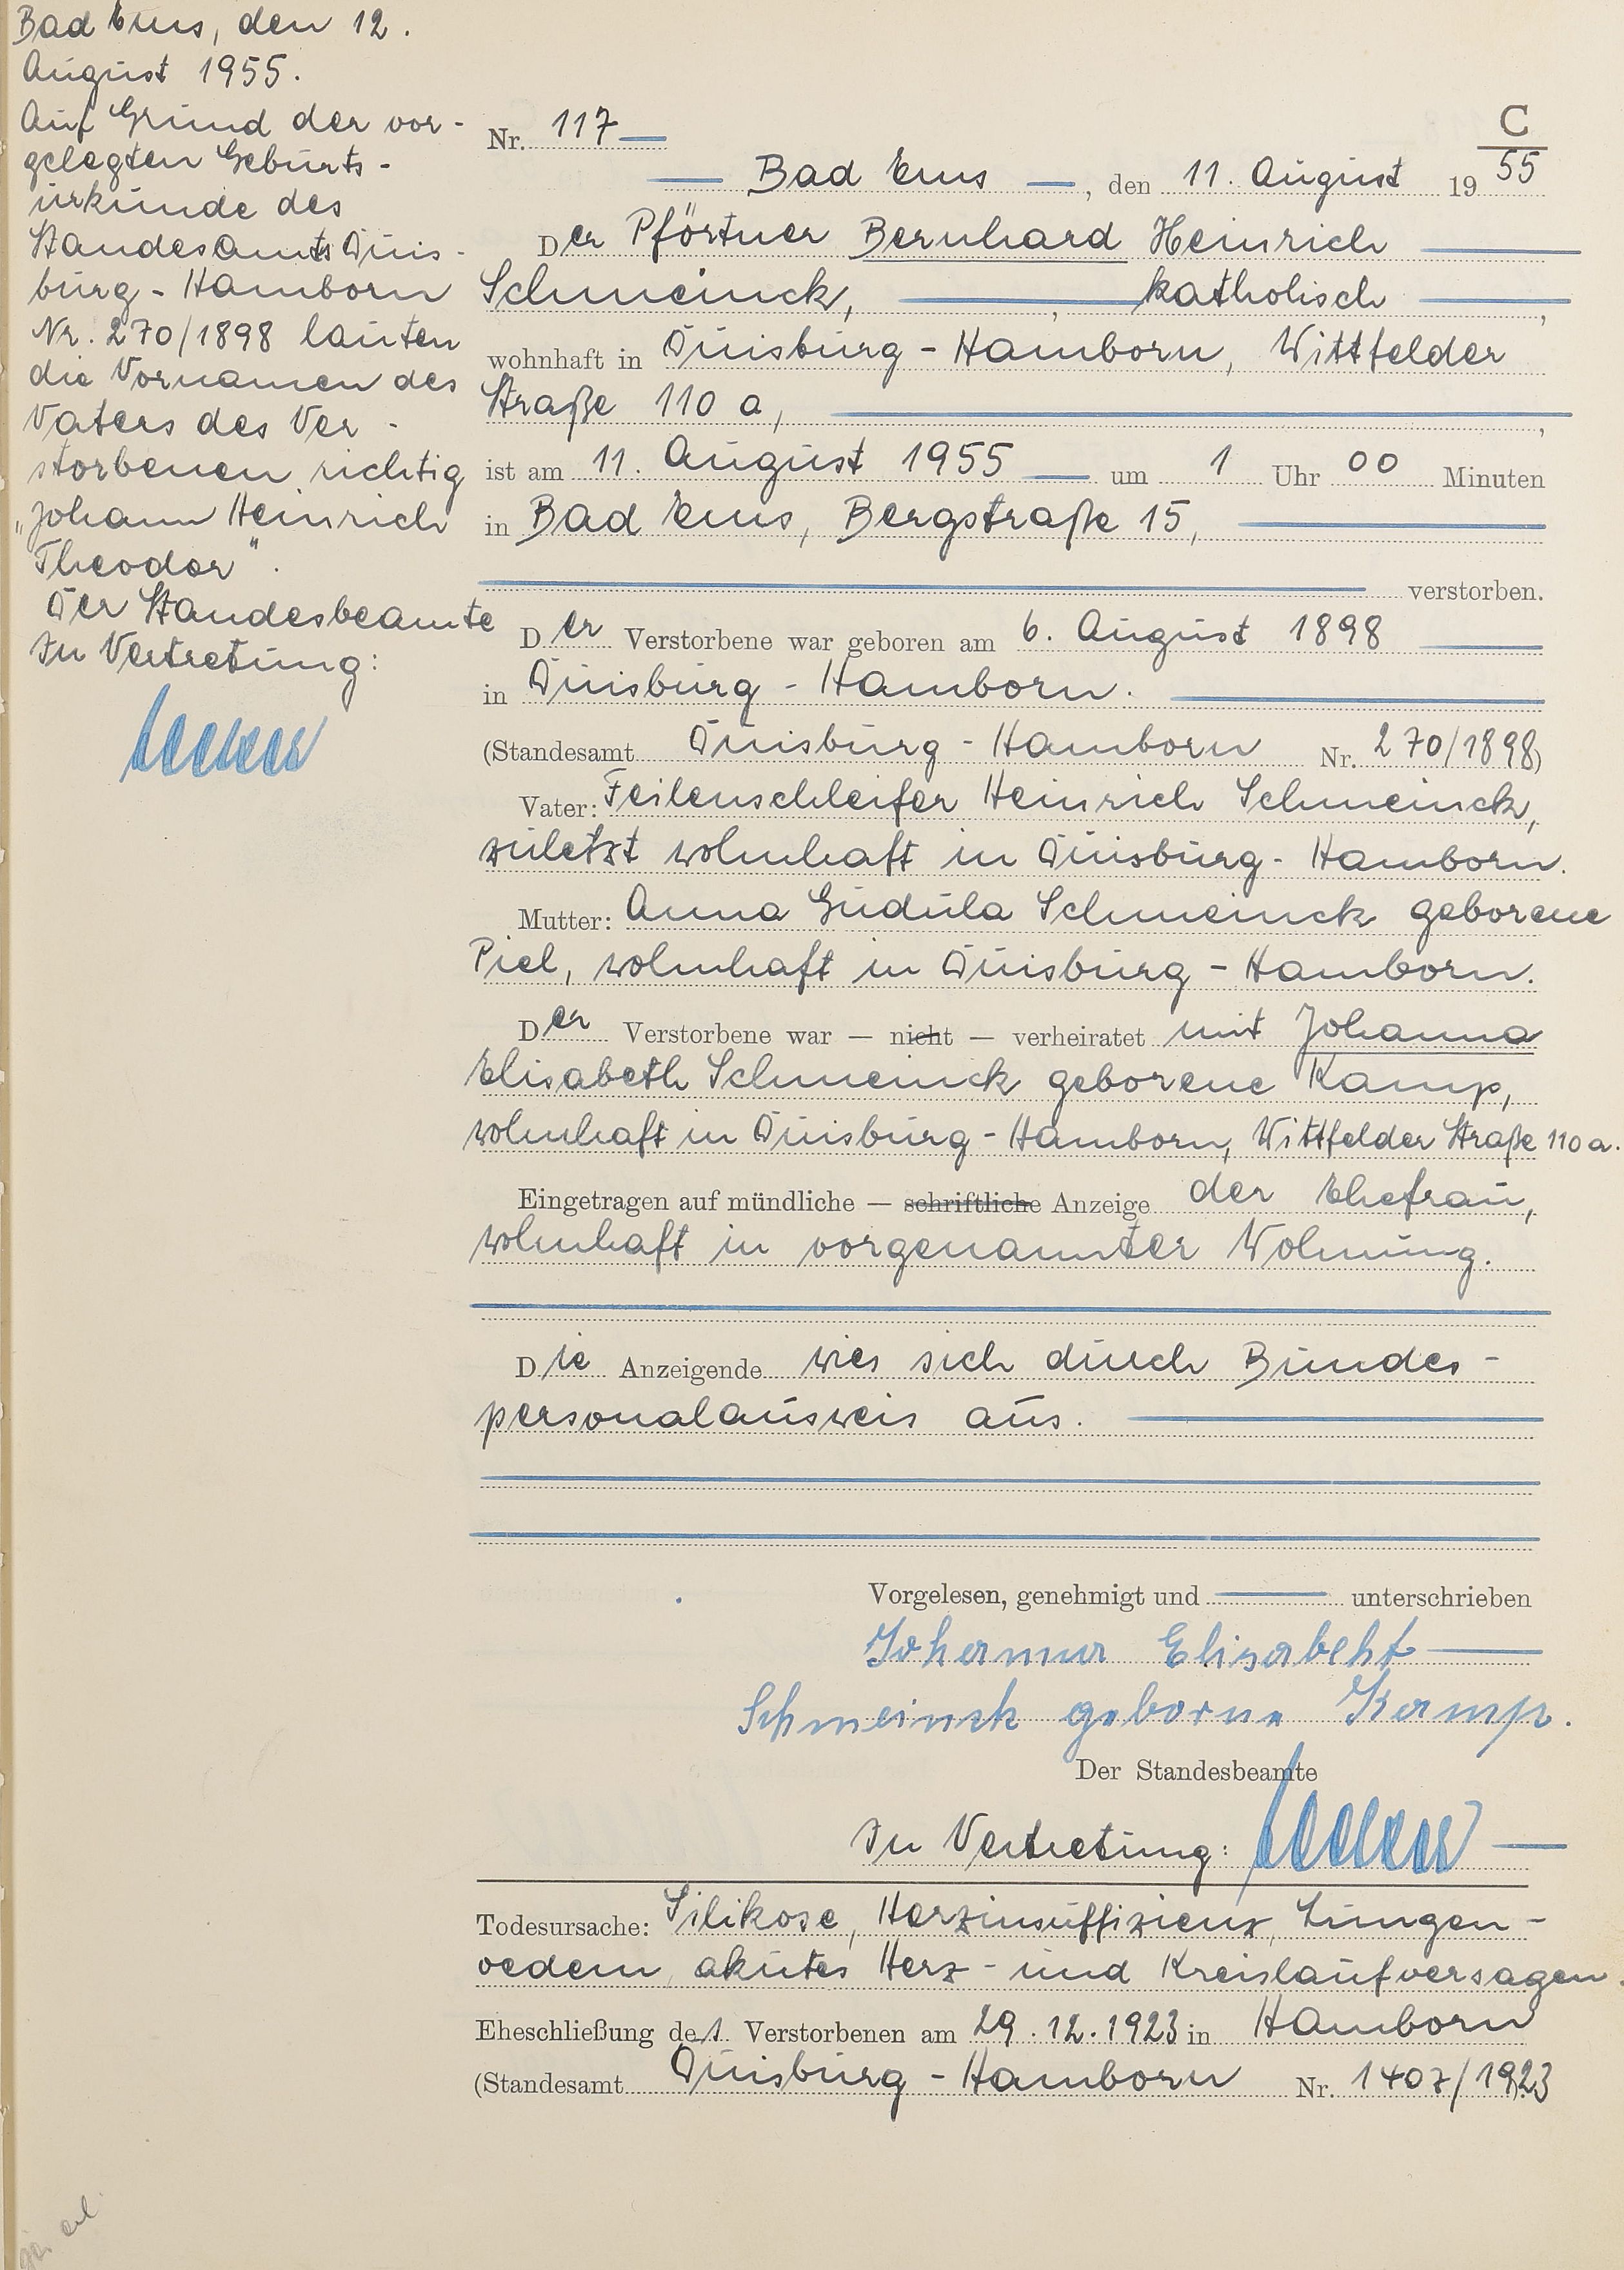 Bad Ems, den 12.
August 1955.
Auf Grund der vor-
gelegten Geburts-
urkunde des
Standesamts Duis-
burg-Hamborn
Nr. 270/1898 lauten
die Vornamen des
Vaters des Ver-
storbenen richtig
„Johann Heinrich
Theodor".
Der Standesbeamte
In Vertretung:
C
Nr. 117
55
Bad Ems, den 11. August 1955
Der Pförtner Bernhard Heinrich
Schmeinck, katholisch,
wohnhaft in Duisburg-Hamborn, Wittfelder
Straße 110 a,
ist am 11. August 1955 um 1 Uhr 00 Minuten
in Bad Ems, Bergstraße 15,
verstorben.
Der Verstorbene war geboren am 6. August 1898
in Duisburg-Hamborn.
(Standesamt Duisburg-Hamborn Nr. 270/1898)
Vater: Feilenschleifer Heinrich Schmeinck,
zuletzt wohnhaft in Duisburg-Hamborn.
Mutter: Anna Gudula Schmeinck geborene
Piel, wohnhaft in Duisburg-Hamborn.
Der Verstorbene war — nicht — verheiratet mit Johanna
Elisabeth Schmeinck geborene Kamp,
wohnhaft in Duisburg-Hamborn, Wittfelder Straße 110 a.
Eingetragen auf mündliche — schriftliche Anzeige der Ehefrau,
wohnhaft in vorgenannter Wohnung.
Die Anzeigende wies sich durch Bundes-
personalausweis aus.
Vorgelesen, genehmigt und unterschrieben
Johanna Elisabeht
Schmeinck geborne Kamp.
Der Standesbeamte
In Vertretung:
Todesursache: Silikose, Herzinsuffizienz, Lungen-
oedem, akutes Herz- und Kreislaufversagen.
Eheschließung des Verstorbenen am 29.12.1923 in Hamborn
(Standesamt Duisburg-Hamborn Nr. 1407/1923